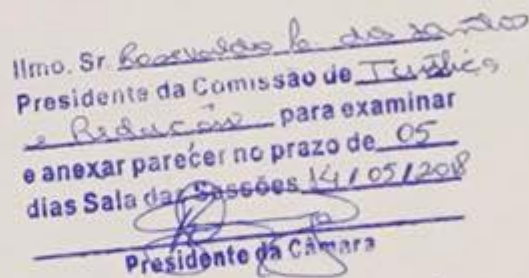 Ilmo. Sr. Rosevaldo P. dos Santos
Presidente da Comissão de Justiça
e Redação para examinar
e anexar parecer no prazo de 05
dias Sala das Sessões 14/05/2018
Presidente da Câmara